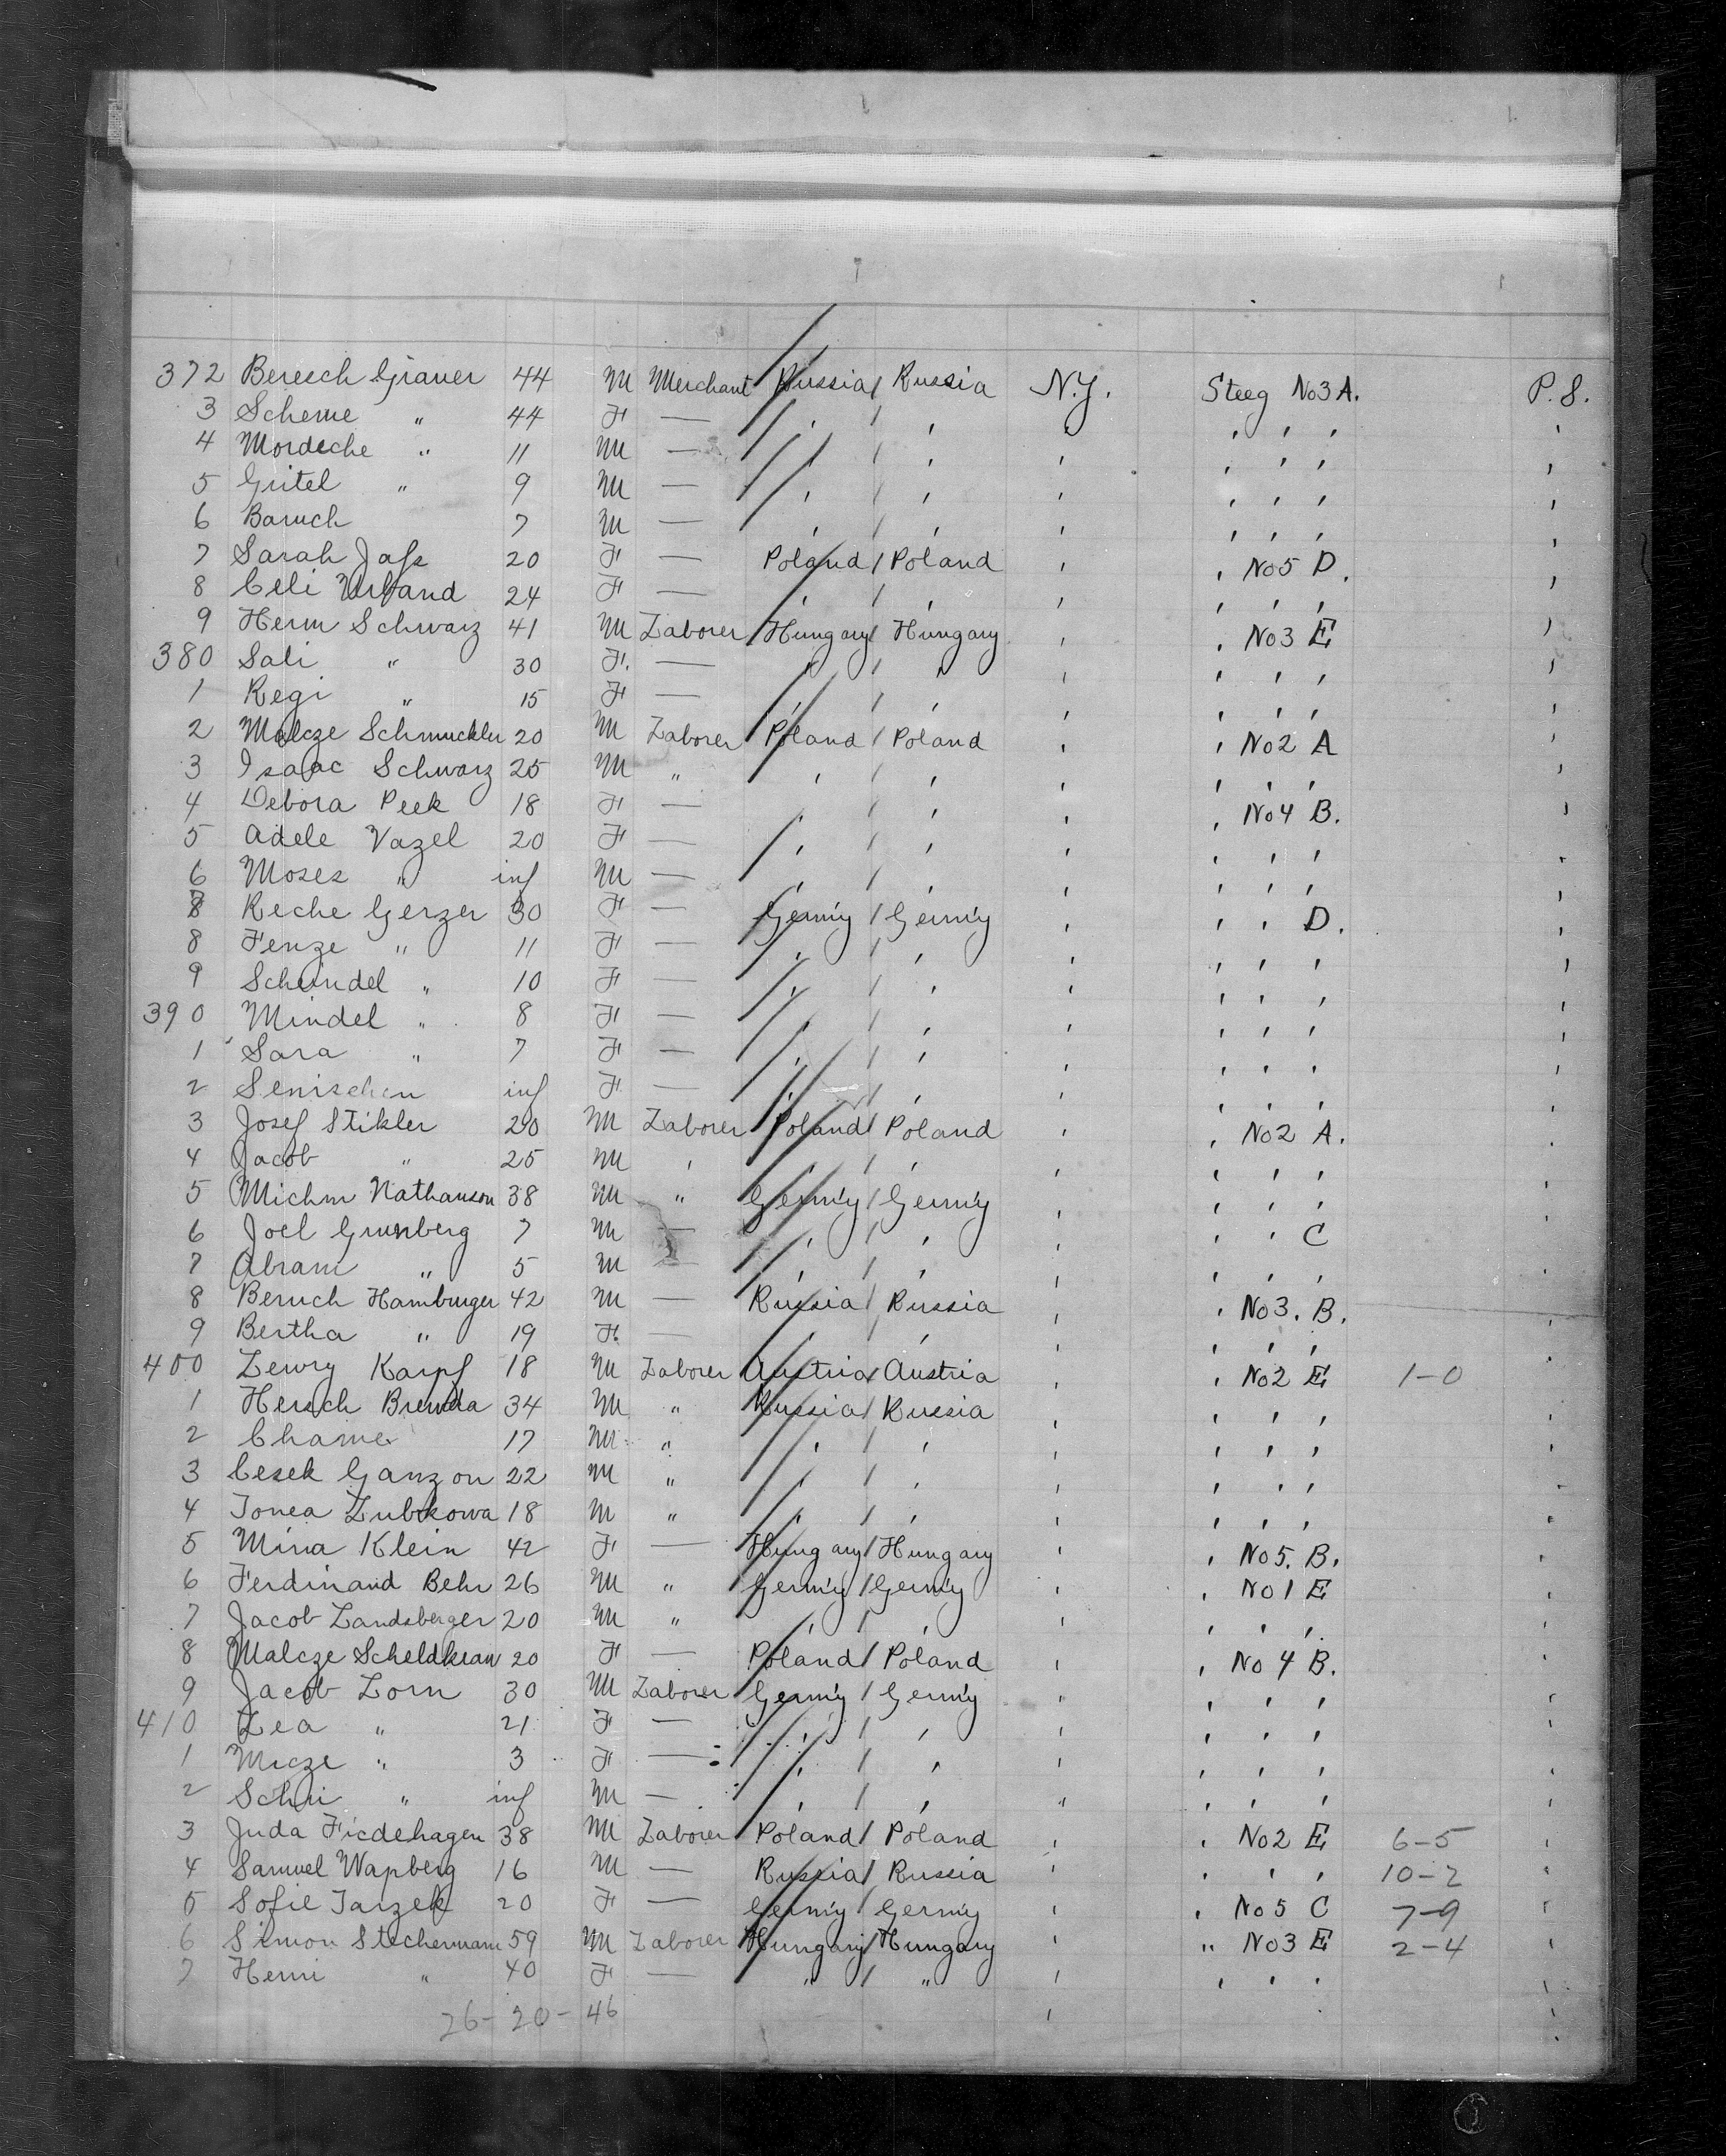 372 Beresch Graner 44 M Merchant Russia / Russia N.Y. Steeg No3 A. P. S.
3 Scheme " 44 F — ' / ' ' ' ' ' '
4 Mordeche " 11 M — ' / ' ' ' ' ' '
5 Gritel " 9 M — ' / ' ' ' ' ' '
6 Baruch 7 M — ' / ' ' ' ' ' '
7 Sarah Jafs 20 F — Poland / Poland ' ' No5 D. '
8 Celi Urband 24 F — ' / ' ' ' ' ' '
9 Herm Schwarz 41 M Laborer Hungary / Hungary ' ' No3 E '
380 Sali " 30 F. — ' / ' ' ' ' ' '
1 Regi " 15 F — ' / ' ' ' ' ' '
2 Malcze Schmuckler 20 M Laborer Poland / Poland ' ' No2 A '
3 Isaac Schwarz 25 M " ' / ' ' ' ' ' '
4 Debora Peek 18 F — ' / ' ' ' No4 B. '
5 Adele Vazel 20 F — ' / ' ' ' ' ' '
6 Moses " inf M — ' / ' ' ' ' ' '
7 Reche Gerzer 30 F — Germ'y / Germ'y ' ' ' D. '
8 Fenze " 11 F — ' / ' ' ' ' ' '
9 Scheindel " 10 F — ' / ' ' ' ' ' '
390 Mindel " 8 F — ' / ' ' ' ' ' '
1 Sara " 7 F — ' / ' ' ' ' ' '
2 Senischen inf F — ' / ' ' ' ' ' '
3 Josef Stikler 20 M Laborer Poland / Poland ' ' No2 A. '
4 Jacob " 25 M ' ' / ' ' ' ' ' '
5 Michm Nathanson 38 M " Germ'y / Germ'y ' ' ' ' '
6 Joel Grunberg 7 M — ' / ' ' ' ' C '
7 Abram " 5 M — ' / ' ' ' ' ' '
8 Beruch Hamburger 42 M — Russia / Russia ' ' No3. B. '
9 Bertha " 19 F. — ' / ' ' ' ' ' '
400 Lewry Karpf 18 M Laborer Austria / Austria ' ' No2 E 1-0
1 Hersch Brewda 34 M " Russia / Russia ' ' ' ' '
2 Chame 17 M " ' / ' ' ' ' ' '
3 Cesek Ganzon 22 M " ' / ' ' ' ' ' '
4 Jonea Lubkowa 18 M " ' / ' ' ' ' ' '
5 Mina Klein 42 F — Hungary / Hungary ' ' No5. B. '
6 Ferdinand Behr 26 M " Germ'y / Germ'y ' ' No1 E '
7 Jacob Landsberger 20 M " ' / ' ' ' ' ' '
8 Malcze Scheldkran 20 F — Poland / Poland ' ' No4 B. '
9 Jacob Lorn 30 M Laborer Germ'y / Germ'y ' ' ' ' '
410 Lea " 21 F — ' / ' ' ' ' ' '
1 Micze " 3 F — ' / ' ' ' ' ' '
2 Schii " inf M — ' / ' " ' ' ' '
3 Juda Fiedehagen 38 M Laborer Poland / Poland ' ' No2 E 6-5 '
4 Samuel Wapberg 16 M — Russia / Russia ' ' ' ' 10-2 '
5 Sofie Jarzek 20 F — Germ'y / Germ'y ' ' No5 C 7-9 '
6 Simon Stechermann 59 M Laborer Hungary / Hungary ' " No3 E 2-4 '
7 Herni " 40 F — " / " ' ' ' ' '
26-20-46